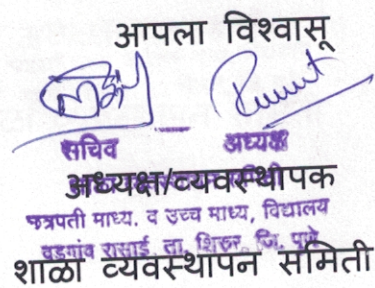 आपला विश्वासू
सचिव अध्यक्ष
अध्यक्ष/व्यवस्थापक
छत्रपती माध्य. व उच्च माध्य, विद्यालय
वडगांव रासाई, ता. शिरूर, जि. पुणे
शाळा व्यवस्थापन समिती